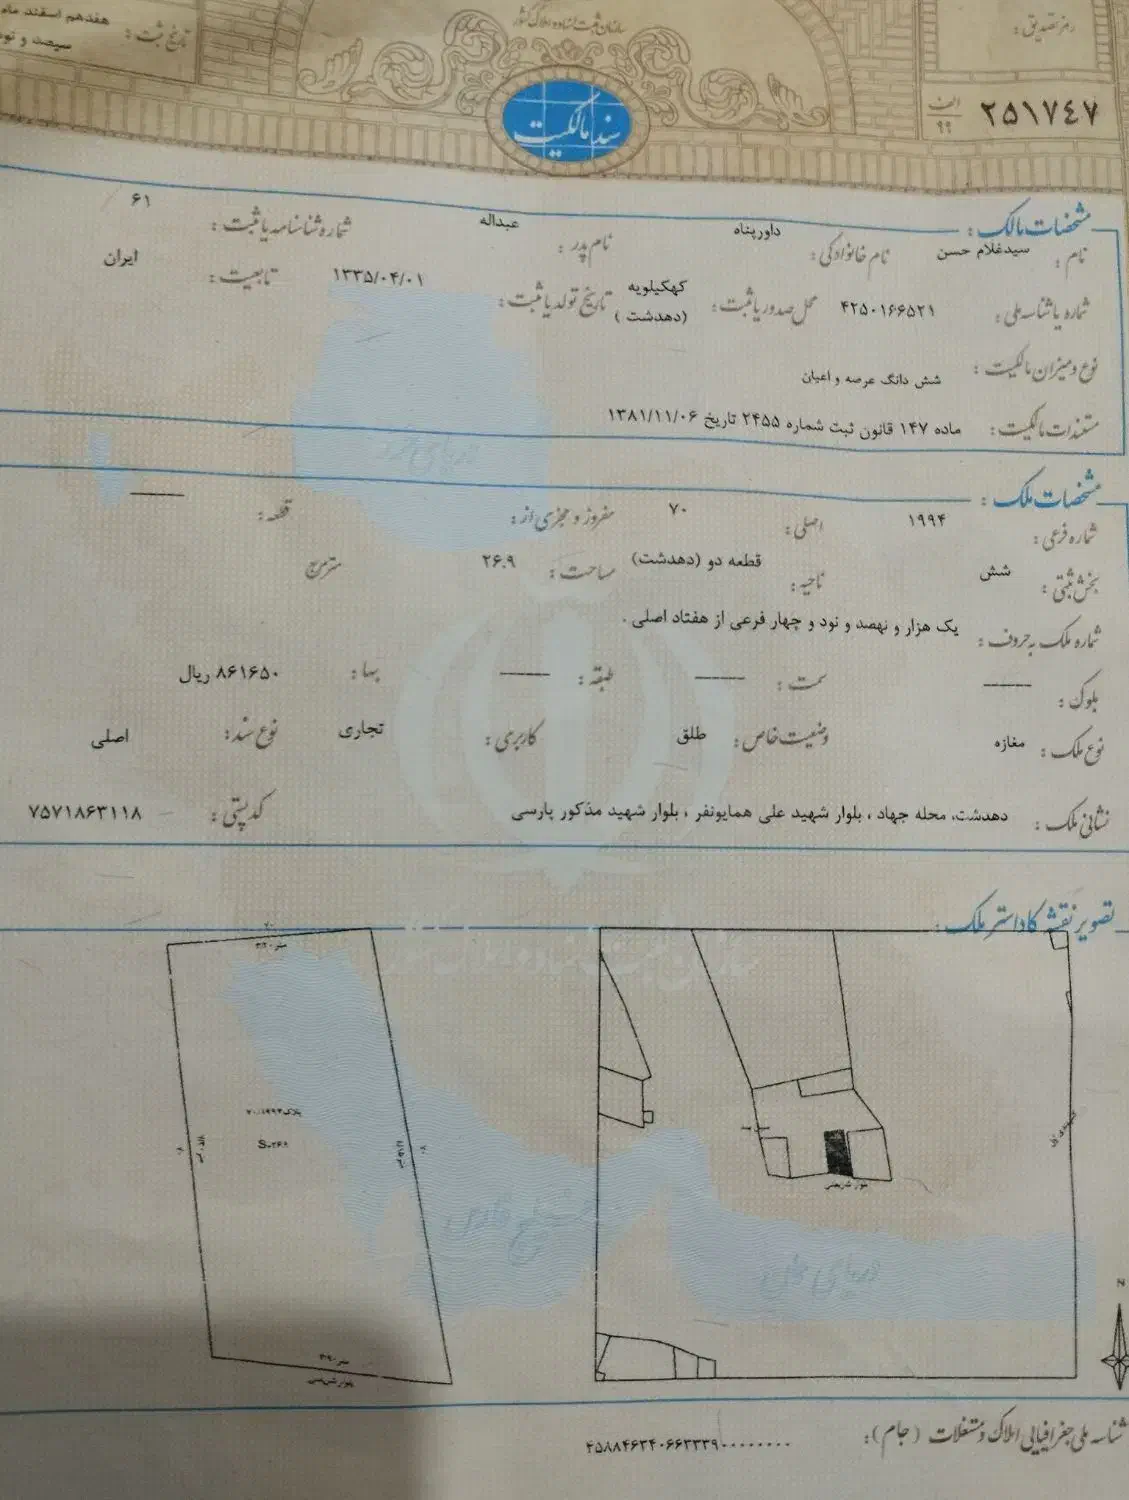 سازمان ثبت اسناد و املاک کشور
رمز تصدیق:
تاریخ ثبت: هفدهم اسفند ماه
سیصد و نود
الف ۹۹ ۲۵۱۷۴۷
سند مالکیت
مشخصات مالک:
نام: سیدغلام حسن نام خانوادگی: داورپناه نام پدر: عبداله شماره شناسنامه یا ثبت: ۶۱
شماره یا شناسه ملی: ۴۲۵۰۱۶۶۵۲۱ محل صدور یا ثبت: کهکیلویه (دهدشت) تاریخ تولد یا ثبت: ۱۳۳۵/۰۴/۰۱ تابعیت: ایران
نوع و میزان مالکیت: شش دانگ عرصه و اعیان
مستندات مالکیت: ماده ۱۴۷ قانون ثبت شماره ۲۴۵۵ تاریخ ۱۳۸۱/۱۱/۰۶
مشخصات ملک:
شماره فرعی: ۱۹۹۴ اصلی: ۷۰ مفروز و مجزی از: قطعه:
بخش ثبتی: شش ناحیه: قطعه دو (دهدشت) مساحت: ۲۶.۹ مترمربع
شماره ملک به حروف: یک هزار و نهصد و نود و چهار فرعی از هفتاد اصلی .
بلوک: سمت: طبقه: بها: ۸۶۱۶۵۰ ریال
نوع ملک: مغازه وضعیت خاص: طلق کاربری: تجاری نوع سند: اصلی
نشانی ملک: دهدشت، محله جهاد ، بلوار شهید علی همایونفر ، بلوار شهید مذکور پارسی کدپستی: ۷۵۷۱۸۶۳۱۱۸
تصویر نقشه کاداستر ملک:
خلیج فارس
دریای عمان
N
شناسه ملی جغرافیایی املاک و مستغلات (جام): ۴۵۸۸۴۶۳۴۰۶۶۳۳۳۹۰۰۰۰۰۰۰۰